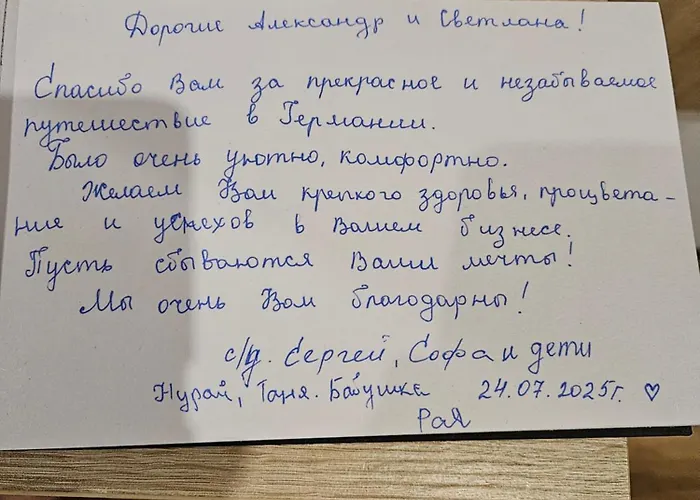 Дорогие Александр и Светлана!
Спасибо Вам за прекрасное и незабываемое
путешествие в Германии.
Было очень уютно, комфортно.
Желаем Вам крепкого здоровья, процвета-
ния и успехов в Вашем бизнесе.
Пусть сбываются Ваши мечты!
Мы очень Вам благодарны!
с/д. Сергей, Софа и дети
Нурай, Таня. Бабушка 24.07.2025г. ♡
Рая